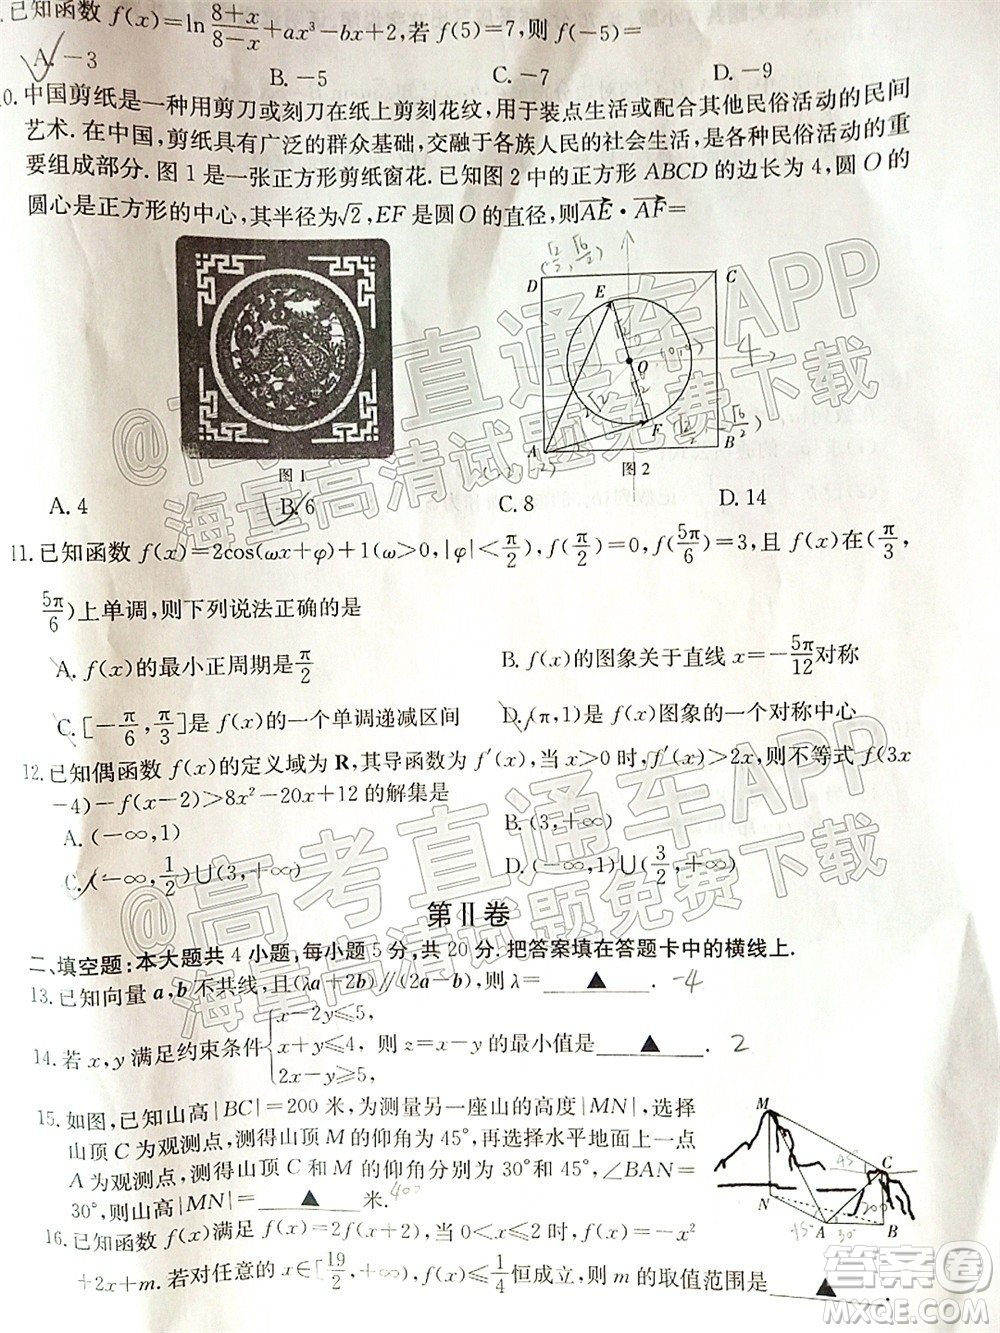 已知函数 f(x)=ln (8+x)/(8-x) +ax³-bx+2,若 f(5)=7,则 f(-5)=
A. -3 B. -5 C. -7 D. -9
0. 中国剪纸是一种用剪刀或刻刀在纸上剪刻花纹,用于装点生活或配合其他民俗活动的民间
艺术. 在中国,剪纸具有广泛的群众基础,交融于各族人民的社会生活,是各种民俗活动的重
要组成部分. 图 1 是一张正方形剪纸窗花. 已知图 2 中的正方形 ABCD 的边长为 4,圆 O 的
圆心是正方形的中心,其半径为√2,EF 是圆 O 的直径,则AE·AF=
D C
E
O
F
A B
4
图 1 图 2
A. 4 B. 6 C. 8 D. 14
11. 已知函数 f(x)=2cos(ωx+φ)+1(ω>0,|φ|<π/2),f(π/2)=0,f(5π/6)=3,且 f(x)在(π/3,
5π/6)上单调,则下列说法正确的是
A. f(x)的最小正周期是π/2 B. f(x)的图象关于直线 x=-5π/12对称
C. [-π/6,π/3]是 f(x)的一个单调递减区间 D. (π,1)是 f(x)图象的一个对称中心
12. 已知偶函数 f(x)的定义域为 R,其导函数为 f′(x),当 x>0 时,f′(x)>2x,则不等式 f(3x
-4)-f(x-2)>8x²-20x+12 的解集是
A. (-∞,1) B. (3,+∞)
C. (-∞,1/2)∪(3,+∞) D. (-∞,1)∪(3/2,+∞)
第Ⅱ卷
二、填空题:本大题共 4 小题,每小题 5 分,共 20 分. 把答案填在答题卡中的横线上.
13. 已知向量 a,b 不共线,且(λa+2b)∥(2a-b),则 λ=▲. -4
x-2y≤5,
14. 若 x,y 满足约束条件 x+y≤4, 则 z=x-y 的最小值是▲. 2
2x-y≥5,
15. 如图,已知山高|BC|=200 米,为测量另一座山的高度|MN|,选择
山顶 C 为观测点,测得山顶 M 的仰角为 45°,再选择水平地面上一点
A 为观测点,测得山顶 C 和 M 的仰角分别为 30°和 45°,∠BAN=
30°,则山高|MN|=▲米. 400
M
45°
C
N
200
A B
45° 30°
16. 已知函数 f(x)满足 f(x)=2f(x+2),当 0<x≤2 时,f(x)=-x²
+2x+m. 若对任意的 x∈[19/2,+∞),f(x)≤1/4恒成立,则 m 的取值范围是▲.
@高考直通车APP
海量高清试题免费下载
@高考直通车APP
海量高清试题免费下载
答案圈
MXQE.COM